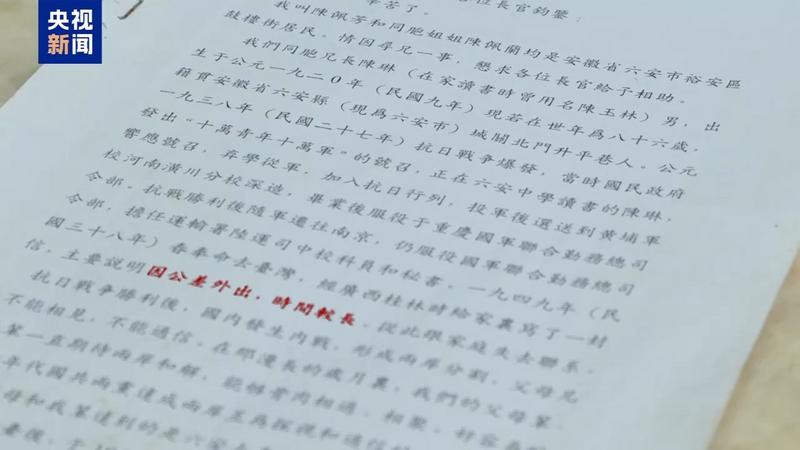 央视
新闻
位長官鈞鑒：
辛苦了。
我叫陳佩芳和同胞姐姐陳佩蘭均是安徽省六安市裕安區
鼓樓街居民。情因尋兄一事，懇求各位長官給予相助。
我們同胞兄長陳琳（在家讀書時曾用名陳玉林）男，出
生于公元一九二0年（民國九年）現若在世年爲八十六歲，
籍貫安徽省六安縣（現爲六安市）城關北門升平巷人。公元
一九三八年（民國二十七年）抗日戰争爆發，當時國民政府
發出“十萬青年十萬軍”的號召，正在六安中學讀書的陳琳，
響應號召，弃學從軍，加入抗日行列，投軍後選送到黄埔軍
校河南潢川分校深造，畢業後服役于重慶國軍聯合勤務總司
令部。抗戰勝利後隨軍遷往南京，仍服役國軍聯合勤務總司
令部，擔任運輸署陸運司中校科員和秘書。一九四九年（民
國三十八年）春奉命去臺灣，經廣西桂林時給家裏寫了一封
信，主要說明因公差外出，時間較長，從此跟家庭失去聯系。
抗日戰争勝利後，國内發生内戰，形成兩岸分割，父母兄
不能相見，不能通信。在那漫長的歲月裏，我們的父母
一直期待兩岸和解，能够骨肉相通，相聚，
年代國共兩黨達成兩岸互爲探視和通信
母和我
臺後，于